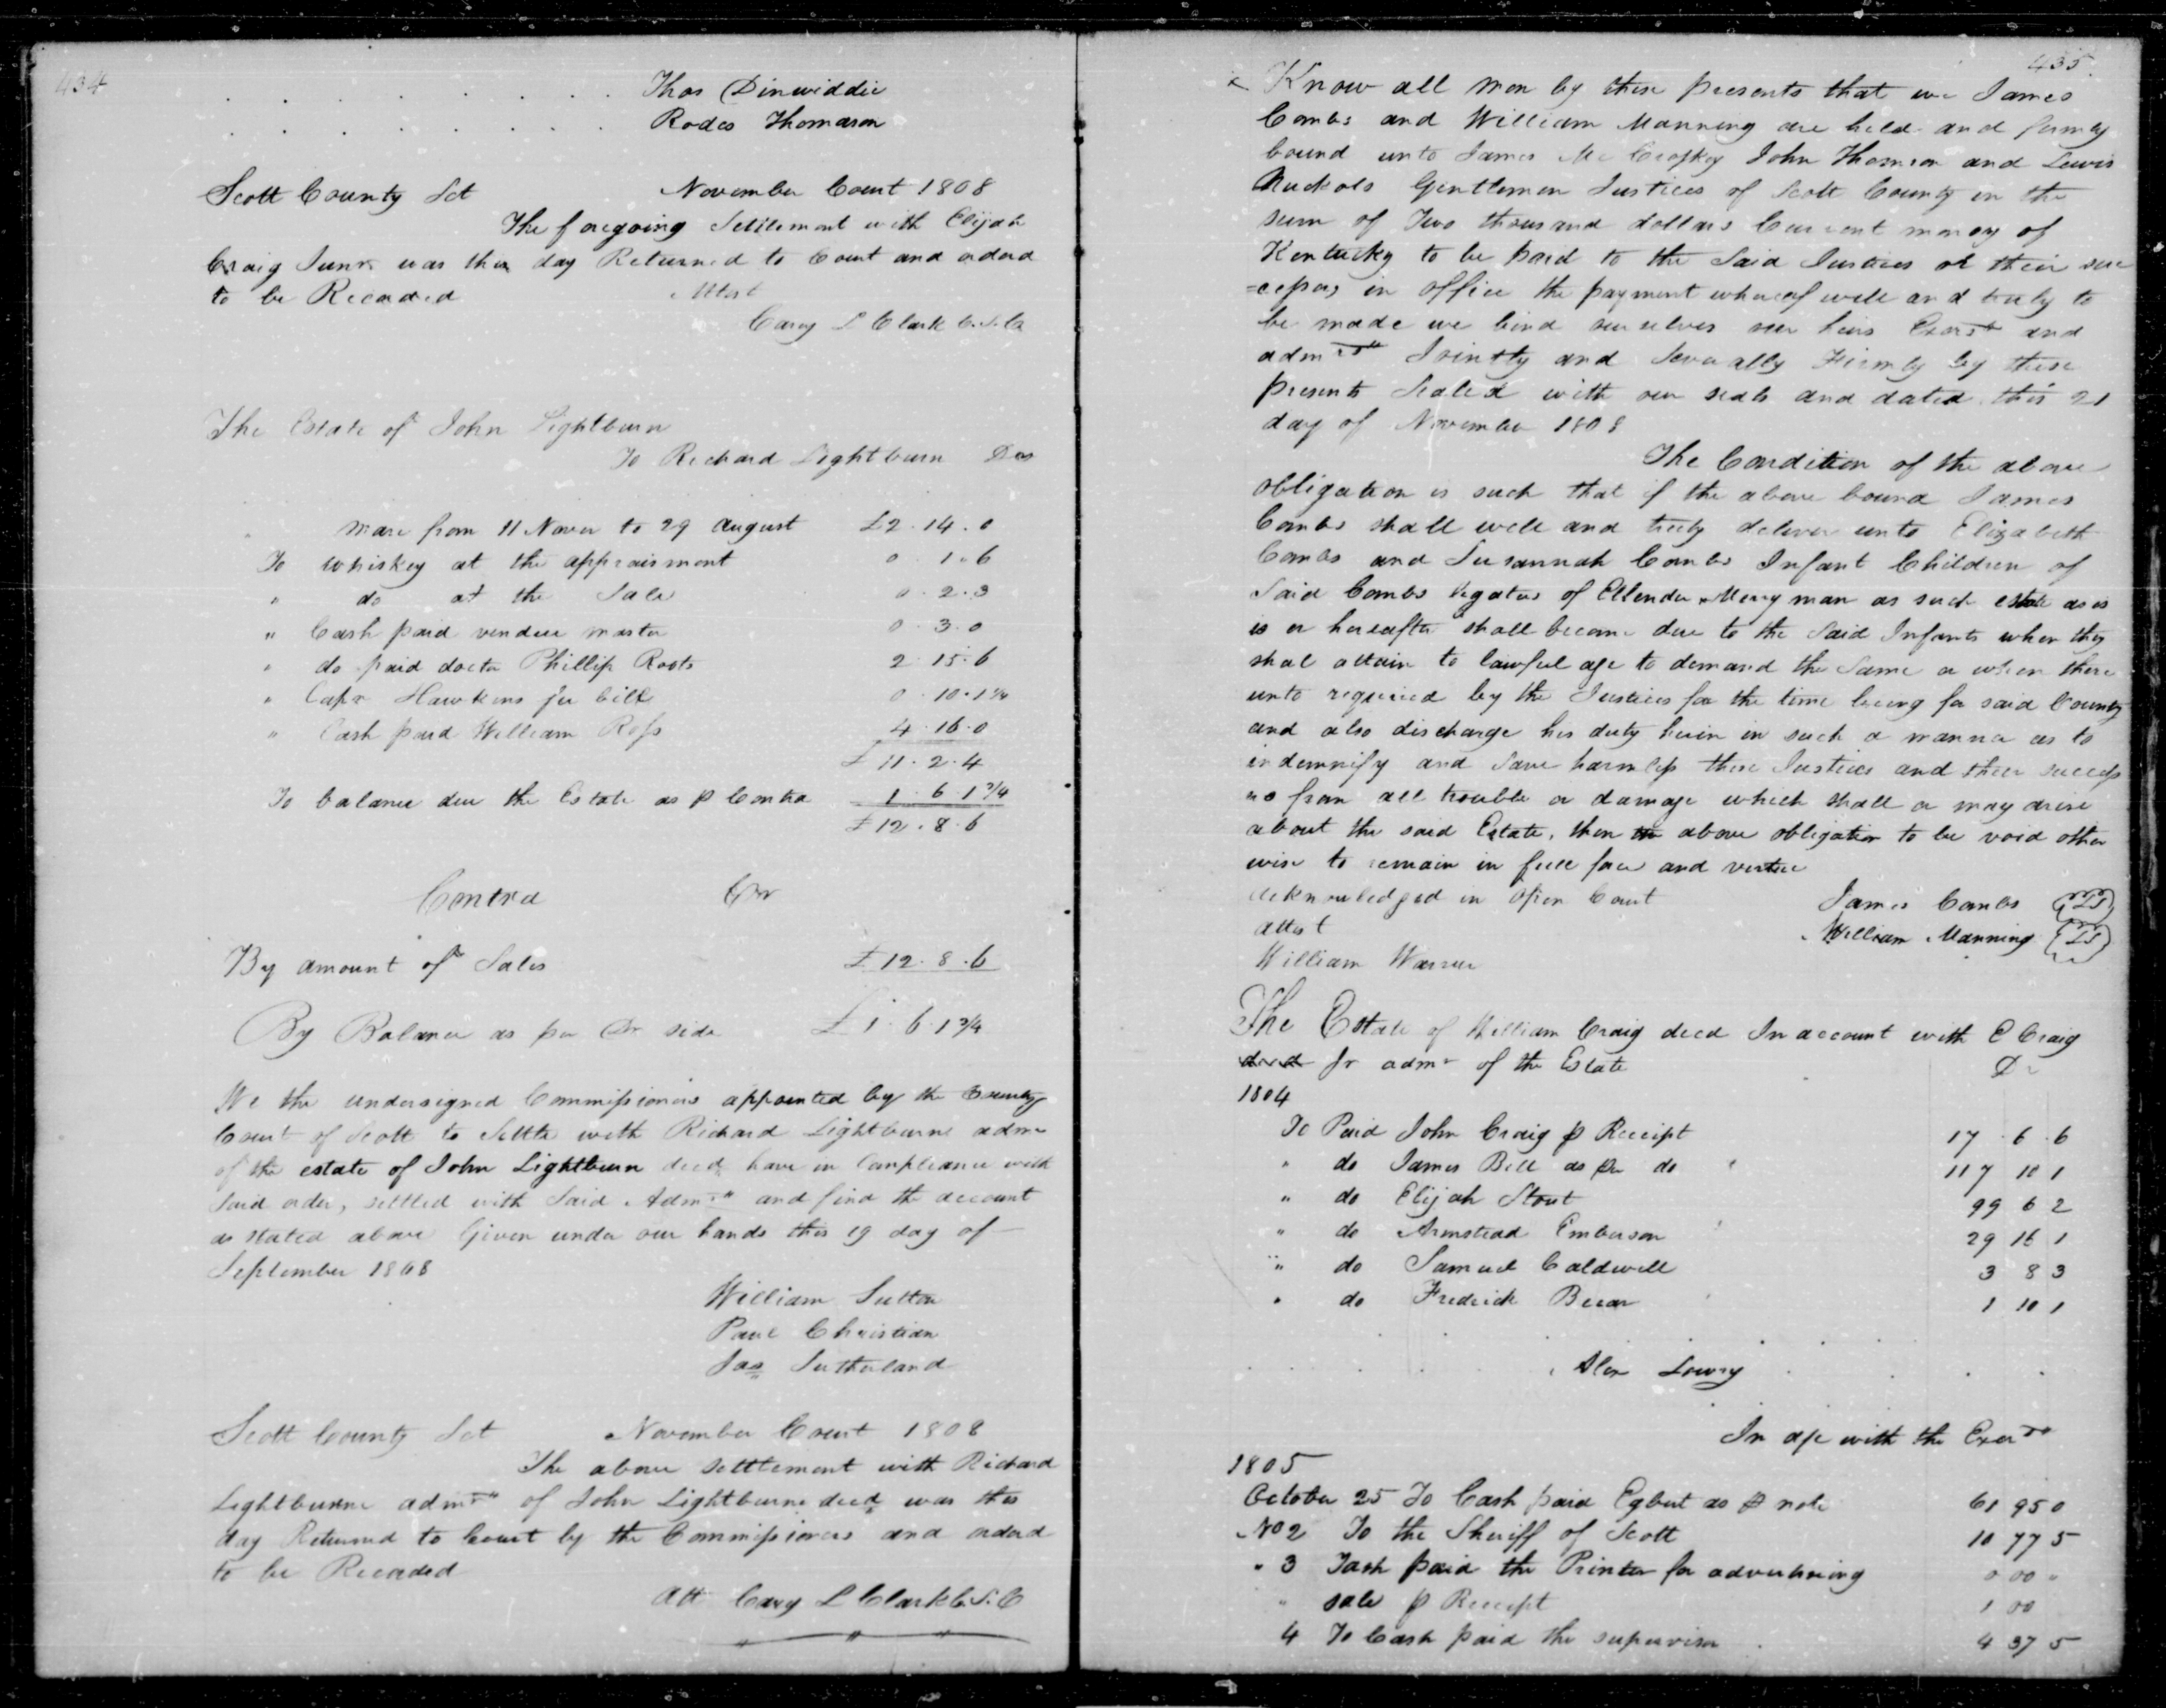 434
Thos Dinwiddie
Rodes Thomason
Scott County Sct November Court 1808
The foregoing Settlement with Elijah
Craig Junr was this day Returned to Court and ordered
to be Recorded Attest
Cary L Clark C.S.C
The Estate of John Lightburn
To Richard Lightburn Dr
mare from 11 Novr to 29 august £2.14.0
To whiskey at the appraisment 0 1.6
" do at the Sale 0.2.3
" Cash paid vendue master 0.3.0
" do paid doctr Phillip Roots 2 15.6
" Capn Hawkins fee bill 0.10.1 3/4
" Cash paid William Ross 4.16.0
£ 11.2.4
To balance due the Estate as p Contra 1.6.1 3/4
£12.8.6
Contra Cr
By amount of Sales £12.8.6
By Balance as per Dr side £1.6.1 3/4
We the undersigned Commissioners appointed by the County
Court of Scott to Settle with Richard Lightburne admr
of the estate of John Lightburn decd have in Compliance with
Said order, settled with Said Admr and find the account
as stated above Given under our hands this 19 day of
September 1808
William Sutton
Paul Christian
Jas Sutherland
Scott County Sct November Court 1808
The above settlement with Richard
Lightburne admr of John Lightburne decd was this
day Returned to Court by the Commissioners and orderd
to be Recorded
Att Cary L Clark C.S.C
435
x Know all men by these presents that we James
Combs and William Manning are held and firmly
bound unto James Mc Croskey John Thomson and Lewis
Nuckols Gentlemen Justices of Scott County in the
sum of Two thousand dollars Current money of
Kentucky to be paid to the Said Justices or their suc
=cessors in office the payment whereof well and truly to
be made we bind ourselves our heirs Exors and
admrs Jointly and Severally Firmly by these
presents Sealed with our seals and dated this 21
day of November 1808
The Condition of the above
obligation is such that if the above bound James
Combs shall well and truly deliver unto Elizabeth
Combs and Susannah Combs Infant Children of
Said Combs legatees of Ellender Merryman as such estate as is
is or hereafter shall become due to the Said Infants when they
shal attain to lawful age to demand the Same or when there
unto required by the Justices for the time being for said County
and also discharge his duty herin in such a manner as to
indemnify and Save harmless these Justices and their success
ors from all trouble or damage which shall or may arise
about the said Estate, then the above obligation to be void other
wise to remain in full force and vertue
acknowledged in open Court James Combs {LS}
attest William Manning {LS}
William Warren
The Estate of William Craig decd In account with E Craig
decd Jr admr of the Estate Dr
1804
To Paid John Craig p Receipt 17.6.6
" do James Bell as per do 117 10 1
" do Elijah Stout 99 6 2
" do Armstead Emberson 29 16 1
" do Samuel Caldwell 3 8 3
" do Fredrick 1 10 1
Alex Lowry
In a/c with the Exer
1805
October 25 To Cash paid Egbert as p note 61 95 0
No 2 To the Sheriff of Scott 10 77 5
" 3 Cash paid the Printer for advertising 0 00 "
" sale p Receipt 1 00
4 To Cash paid the supervisor 4 37 5